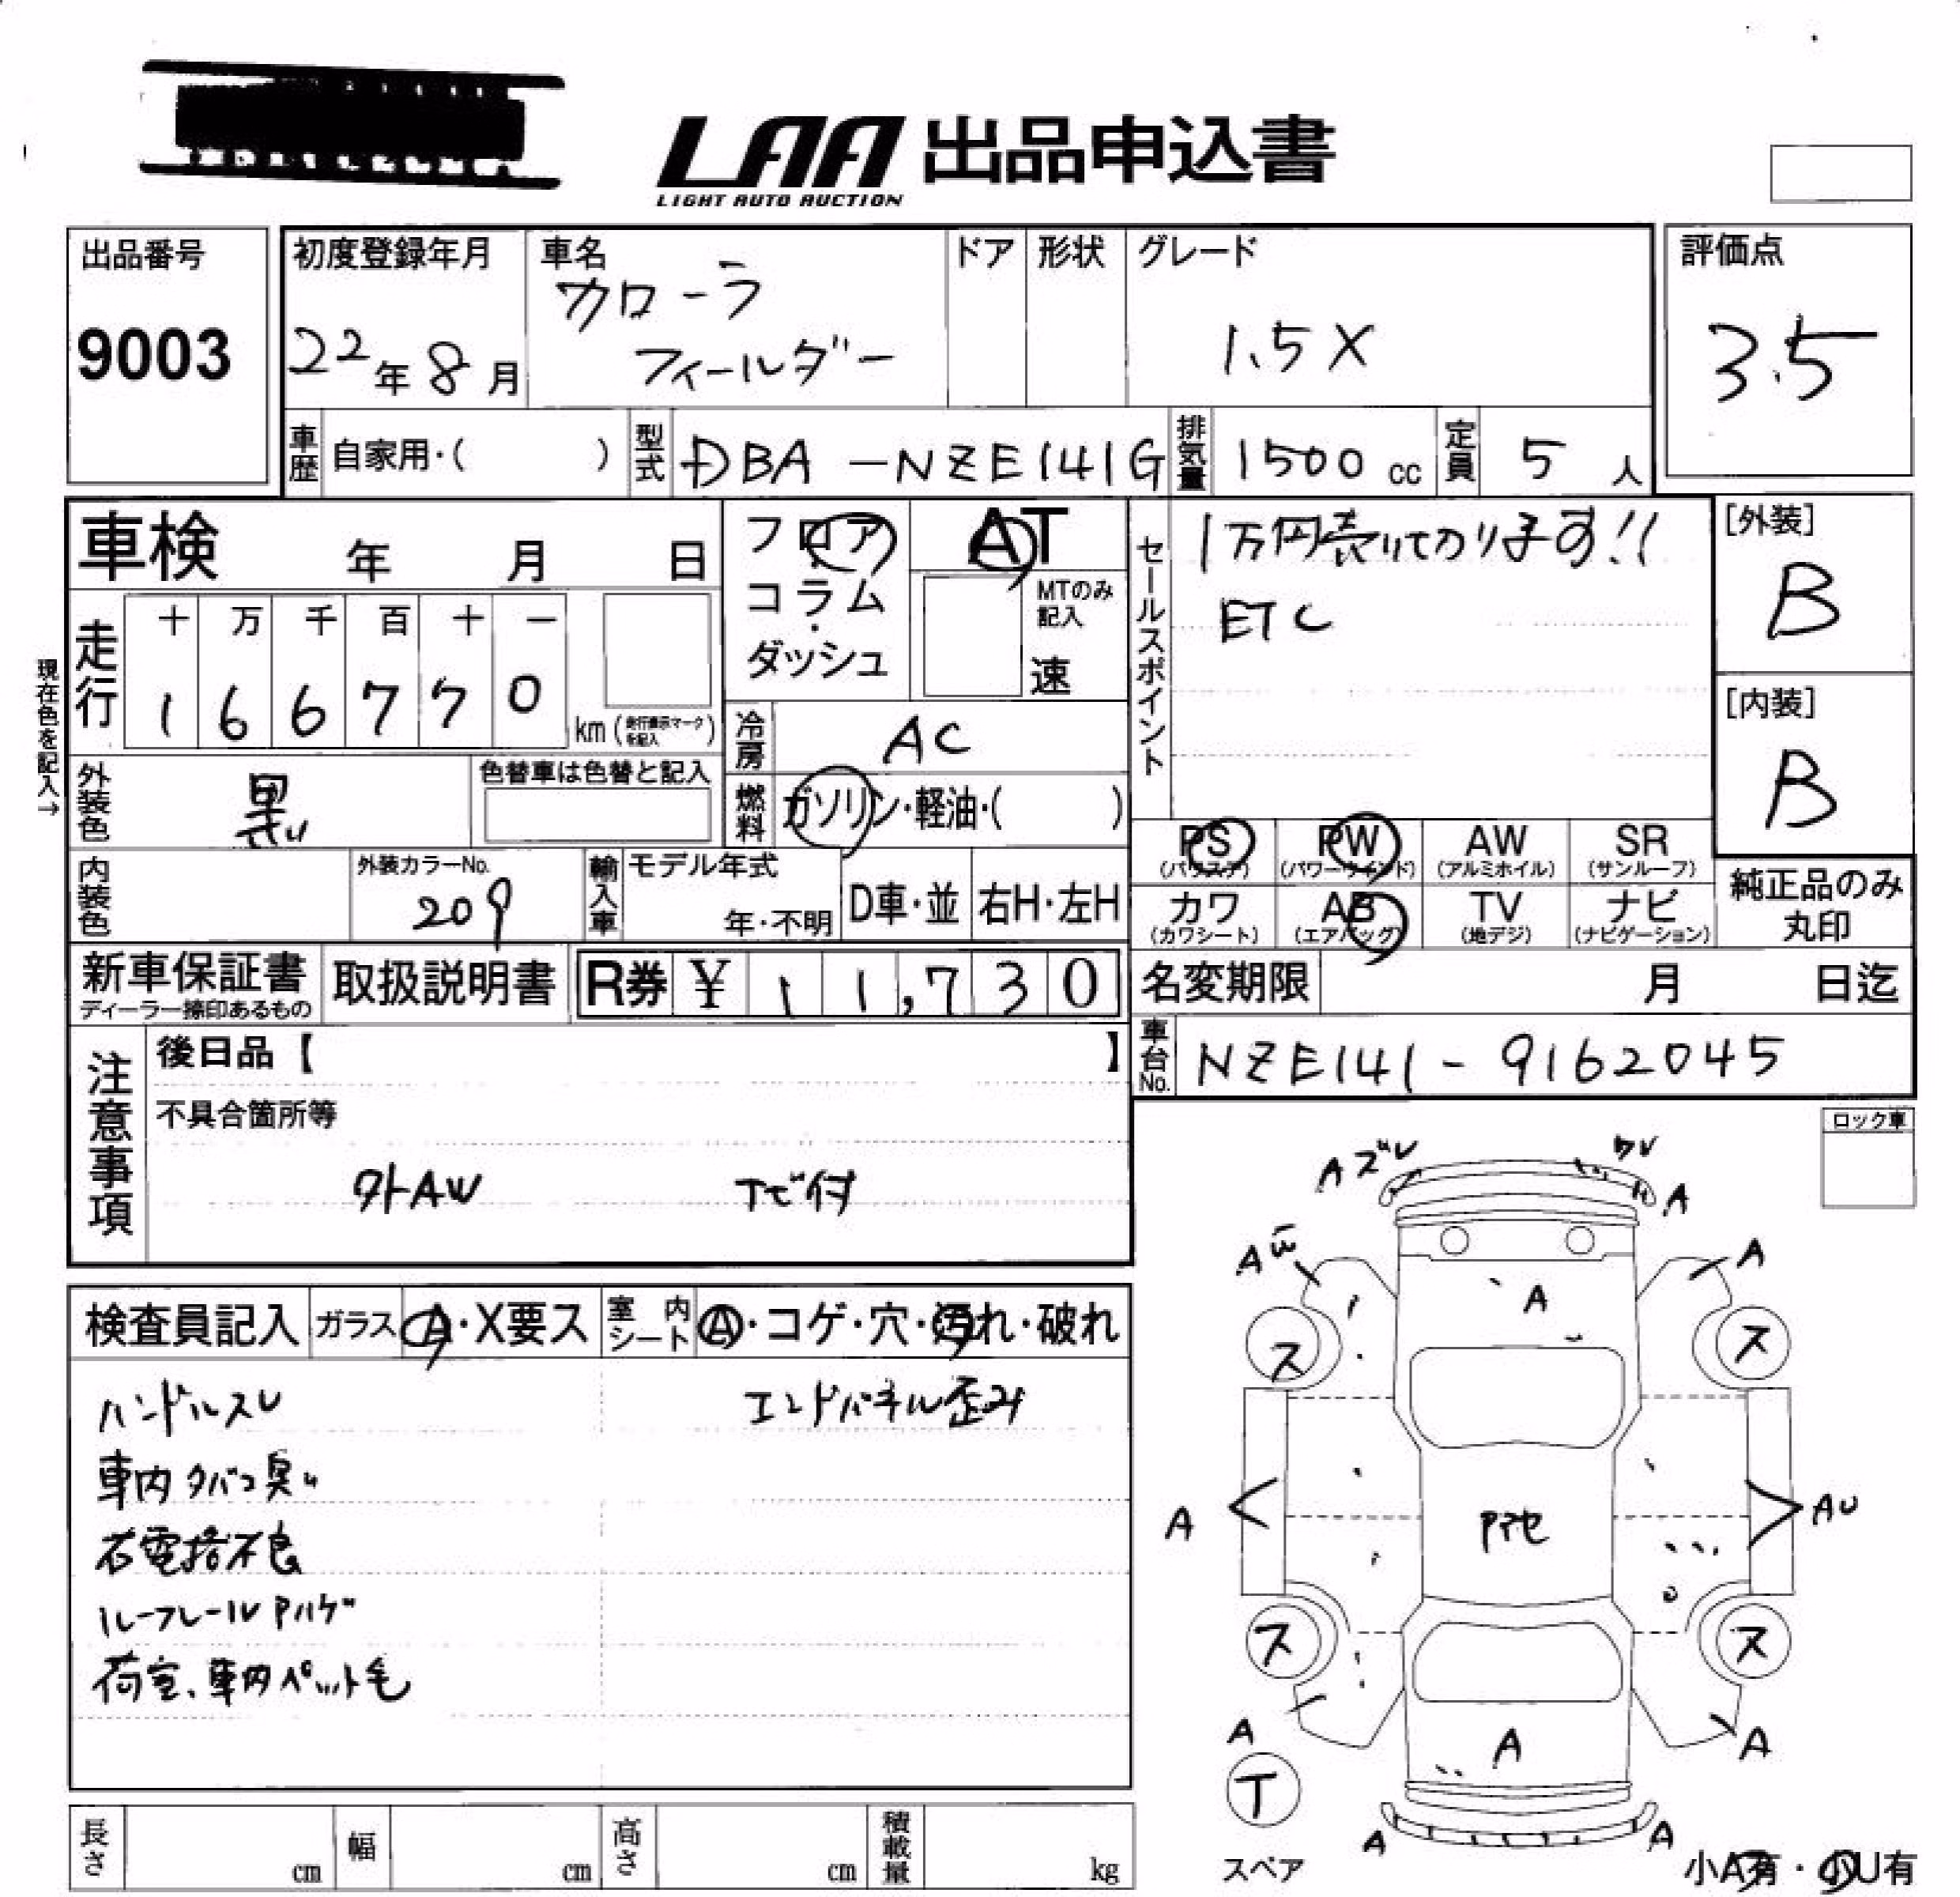 LAA 出品申込書
LIGHT AUTO AUCTION
出品番号
9003
初度登録年月
22年8月
車名
カローラ
フィールダー
ドア
形状
グレード
1.5X
評価点
3.5
車歴 自家用・( )
型式 DBA-NZE141G
排気量 1500 cc
定員 5 人
車検 年 月 日
フロア
コラム
・
ダッシュ
AT
MTのみ記入
速
セールスポイント
1万円売り切ります!!
ETC
[外装]
B
[内装]
B
現在色を記入→
走行
十 万 千 百 十 一
1 6 6 7 7 0
km (走行表示マークを記入)
冷房 AC
燃料 ガソリン・軽油・( )
外装色 黒
色替車は色替と記入
PS (パワステ)
PW (パワーウインド)
AW (アルミホイル)
SR (サンルーフ)
カワ (カワシート)
AB (エアバッグ)
TV (地デジ)
ナビ (ナビゲーション)
純正品のみ
丸印
内装色
外装カラーNo.
209
輸入車
モデル年式
年・不明
D車・並
右H・左H
新車保証書
ディーラー捺印あるもの
取扱説明書
R券 ¥ 11,730
名変期限 月 日迄
車台No. NZE141-9162045
注意事項
後日品【 】
不具合箇所等
外AW
ナビ付
ロック車
検査員記入
ガラス A・X要ス
室内シート A・コゲ・穴・汚れ・破れ
ハンドルスレ
エンドパネル歪み
車内タバコ臭い
右電格不良
ルーフレールPハゲ
荷室、車内ペット毛
Aズレ
ワレ
A
A
A
A
ス
ス
A
AU
Pアセ
ス
ス
A
A
A
T
スペア
A
A
小A有・小U有
長さ cm
幅 cm
高さ cm
積載量 kg